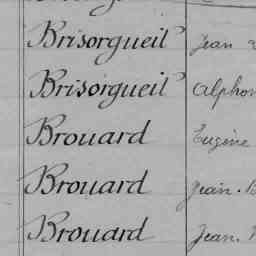 Brisorgueil Jean
Brisorgueil Alphon
Brouard Eugène
Brouard Jean
Brouard Jean